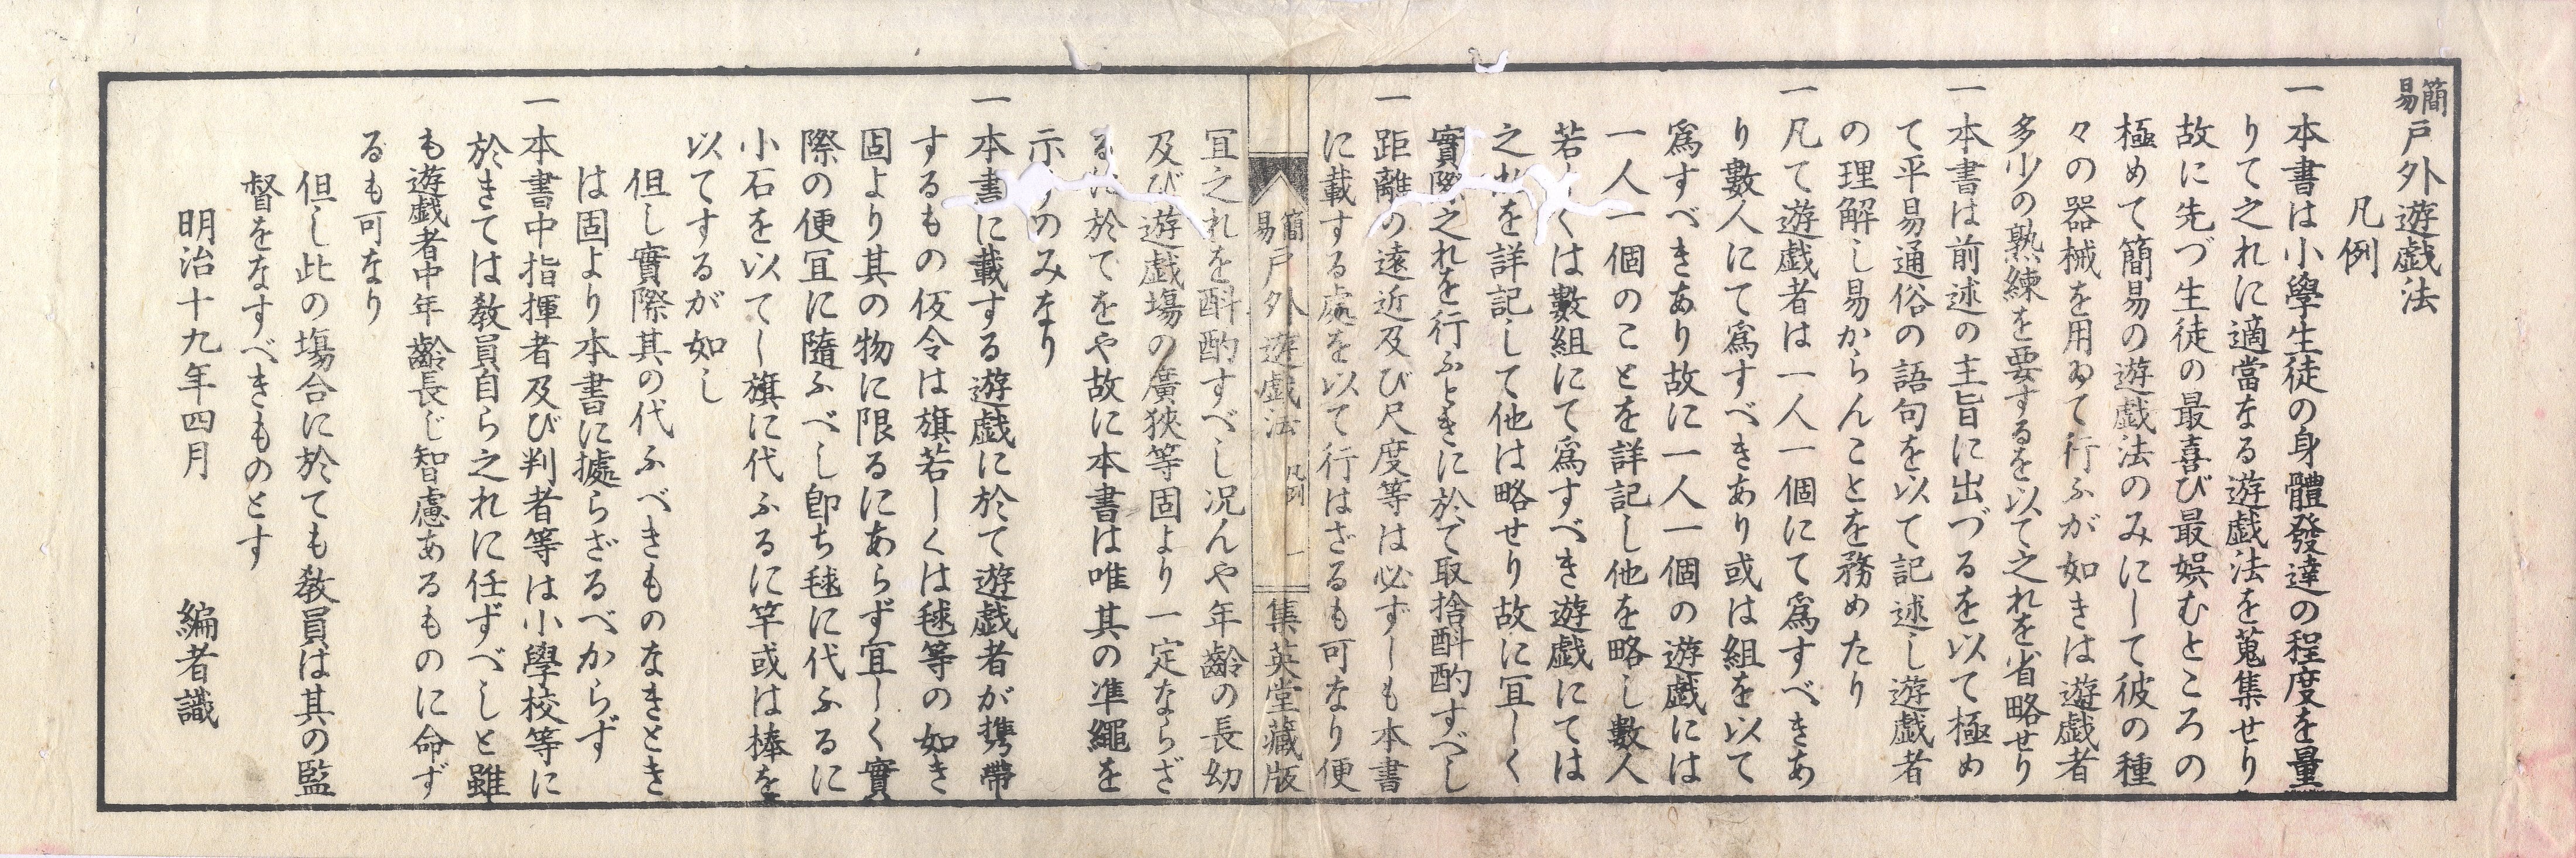 簡易戸外遊戯法
凡例
一本書は小學生徒の身體發達の程度を量
りて之れに適當なる遊戯法を蒐集せり
故に先づ生徒の最喜び最娯むところの
極めて簡易の遊戯法のみにして彼の種
々の器械を用ゐて行ふが如きは遊戯者
多少の熟練を要するを以て之れを省略せり
一本書は前述の主旨に出づるを以て極め
て平易通俗の語句を以て記述し遊戯者
の理解し易からんことを務めたり
一凡て遊戯者は一人一個にて爲すべきあ
り數人にて爲すべきあり或は組を以て
爲すべきあり故に一人一個の遊戯には
一人一個のことを詳記し他を略し數人
若しくは數組にて爲すべき遊戯にては
之れを詳記して他は略せり故に冝しく
實際之れを行ふときに於て取捨酙酌すべし
一距離の遠近及び尺度等は必ずしも本書
に載する處を以て行はざるも可なり便
簡易戸外遊戯法 凡例 一 集英堂藏版
冝之れを酙酌すべし况んや年齡の長幼
及び遊戯塲の廣狹等固より一定ならざ
るに於てをや故に本書は唯其の凖繩を
示すのみなり
一本書に載する遊戯に於て遊戯者が携帶
するもの仮令は旗若しくは毬等の如き
固より其の物に限るにあらず冝しく實
際の便冝に隨ふべし卽ち毬に代ふるに
小石を以てし旗に代ふるに竿或は棒を
以てするが如し
但し實際其の代ふべきものなきとき
は固より本書に據らざるべからず
一本書中指揮者及び判者等は小學校等に
於きては敎員自ら之れに任ずべしと雖
も遊戯者中年齡長じ智慮あるものに命ず
るも可なり
但し此の塲合に於ても敎員は其の監
督をなすべきものとす
明治十九年四月　編者識